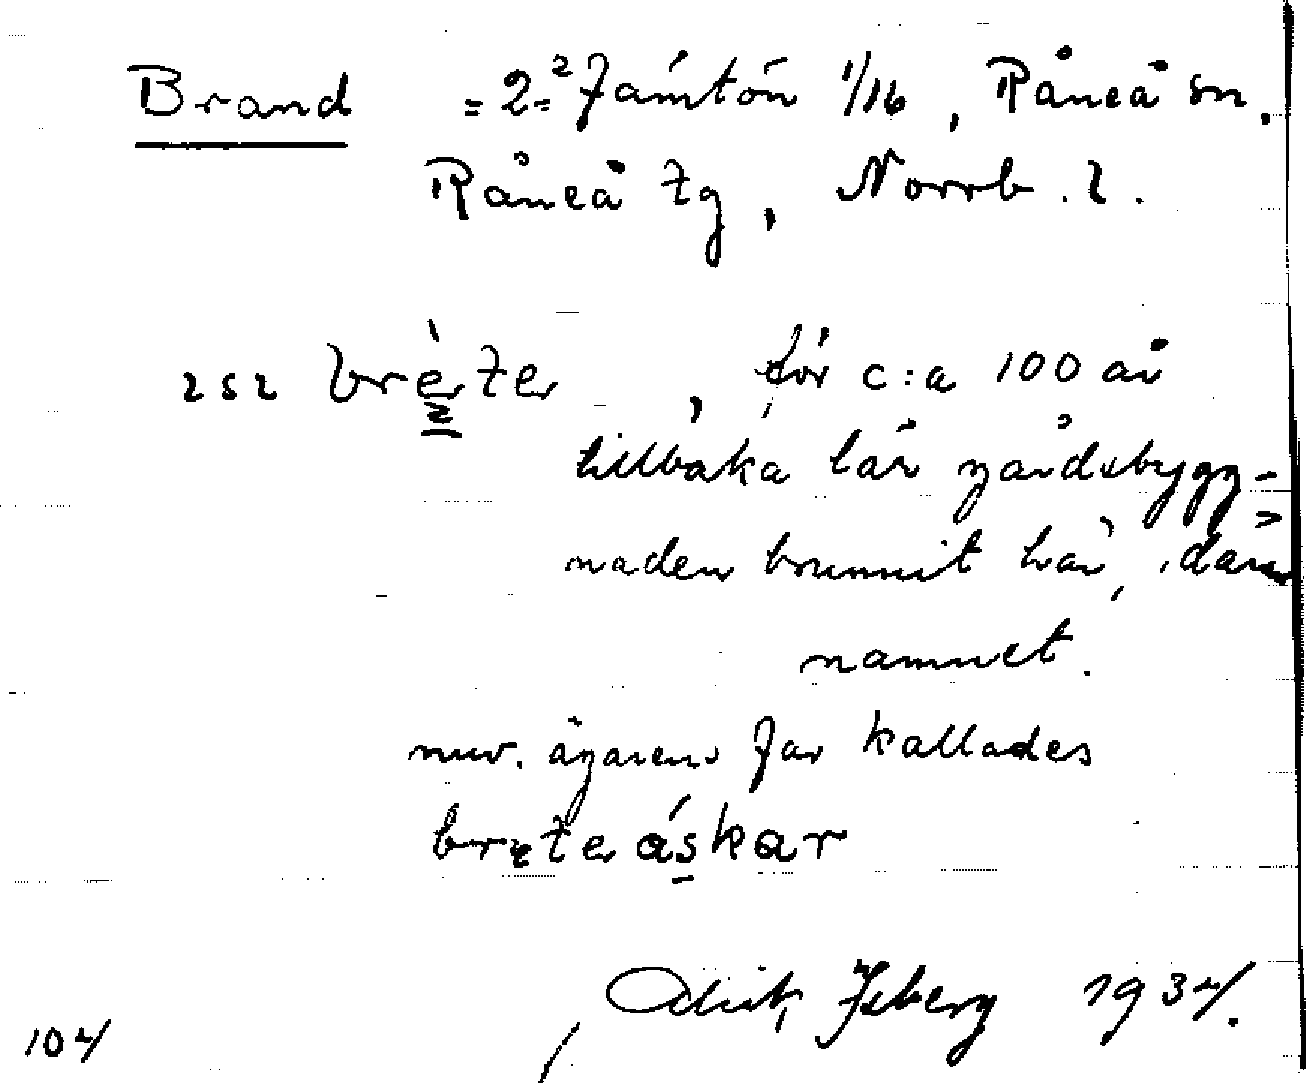 Brand =2=² Jämtön 1/16, Råneå sn.
Råneå tg, Norrb. l.
bréter, för c:a 100 år
tillbaka lär gårdsbygg=
naden brunnit här, därav
namnet.
nuv. ägarens far kallades
breteráskar
Isberg 1934.
104